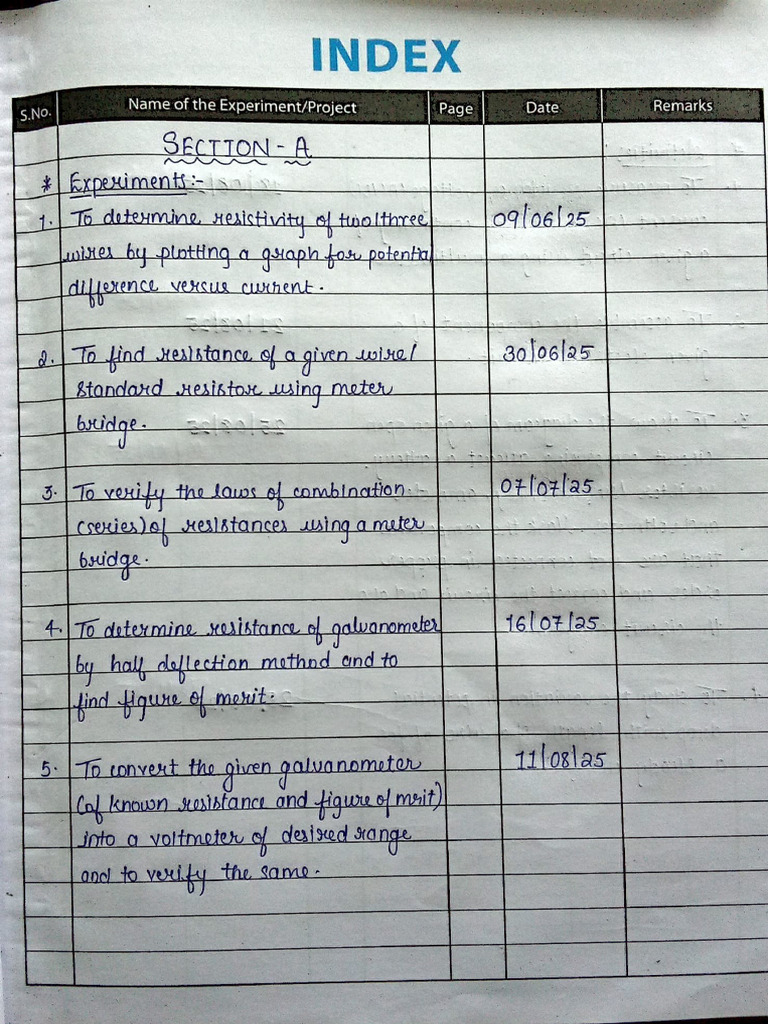 INDEX
S.No. Name of the Experiment/Project Page Date Remarks
SECTION - A
* Experiments :-
1. To determine resistivity of two/three 09/06/25
wires by plotting a graph for potential
difference versus current.
2. To find resistance of a given wire/ 30/06/25
standard resistor using meter
bridge.
3. To verify the laws of combination 07/07/25
(series) of resistances using a meter
bridge.
4. To determine resistance of galvanometer 16/07/25
by half deflection method and to
find figure of merit.
5. To convert the given galvanometer 11/08/25
(of known resistance and figure of mrit)
into a voltmeter of desired range
and to verify the same.